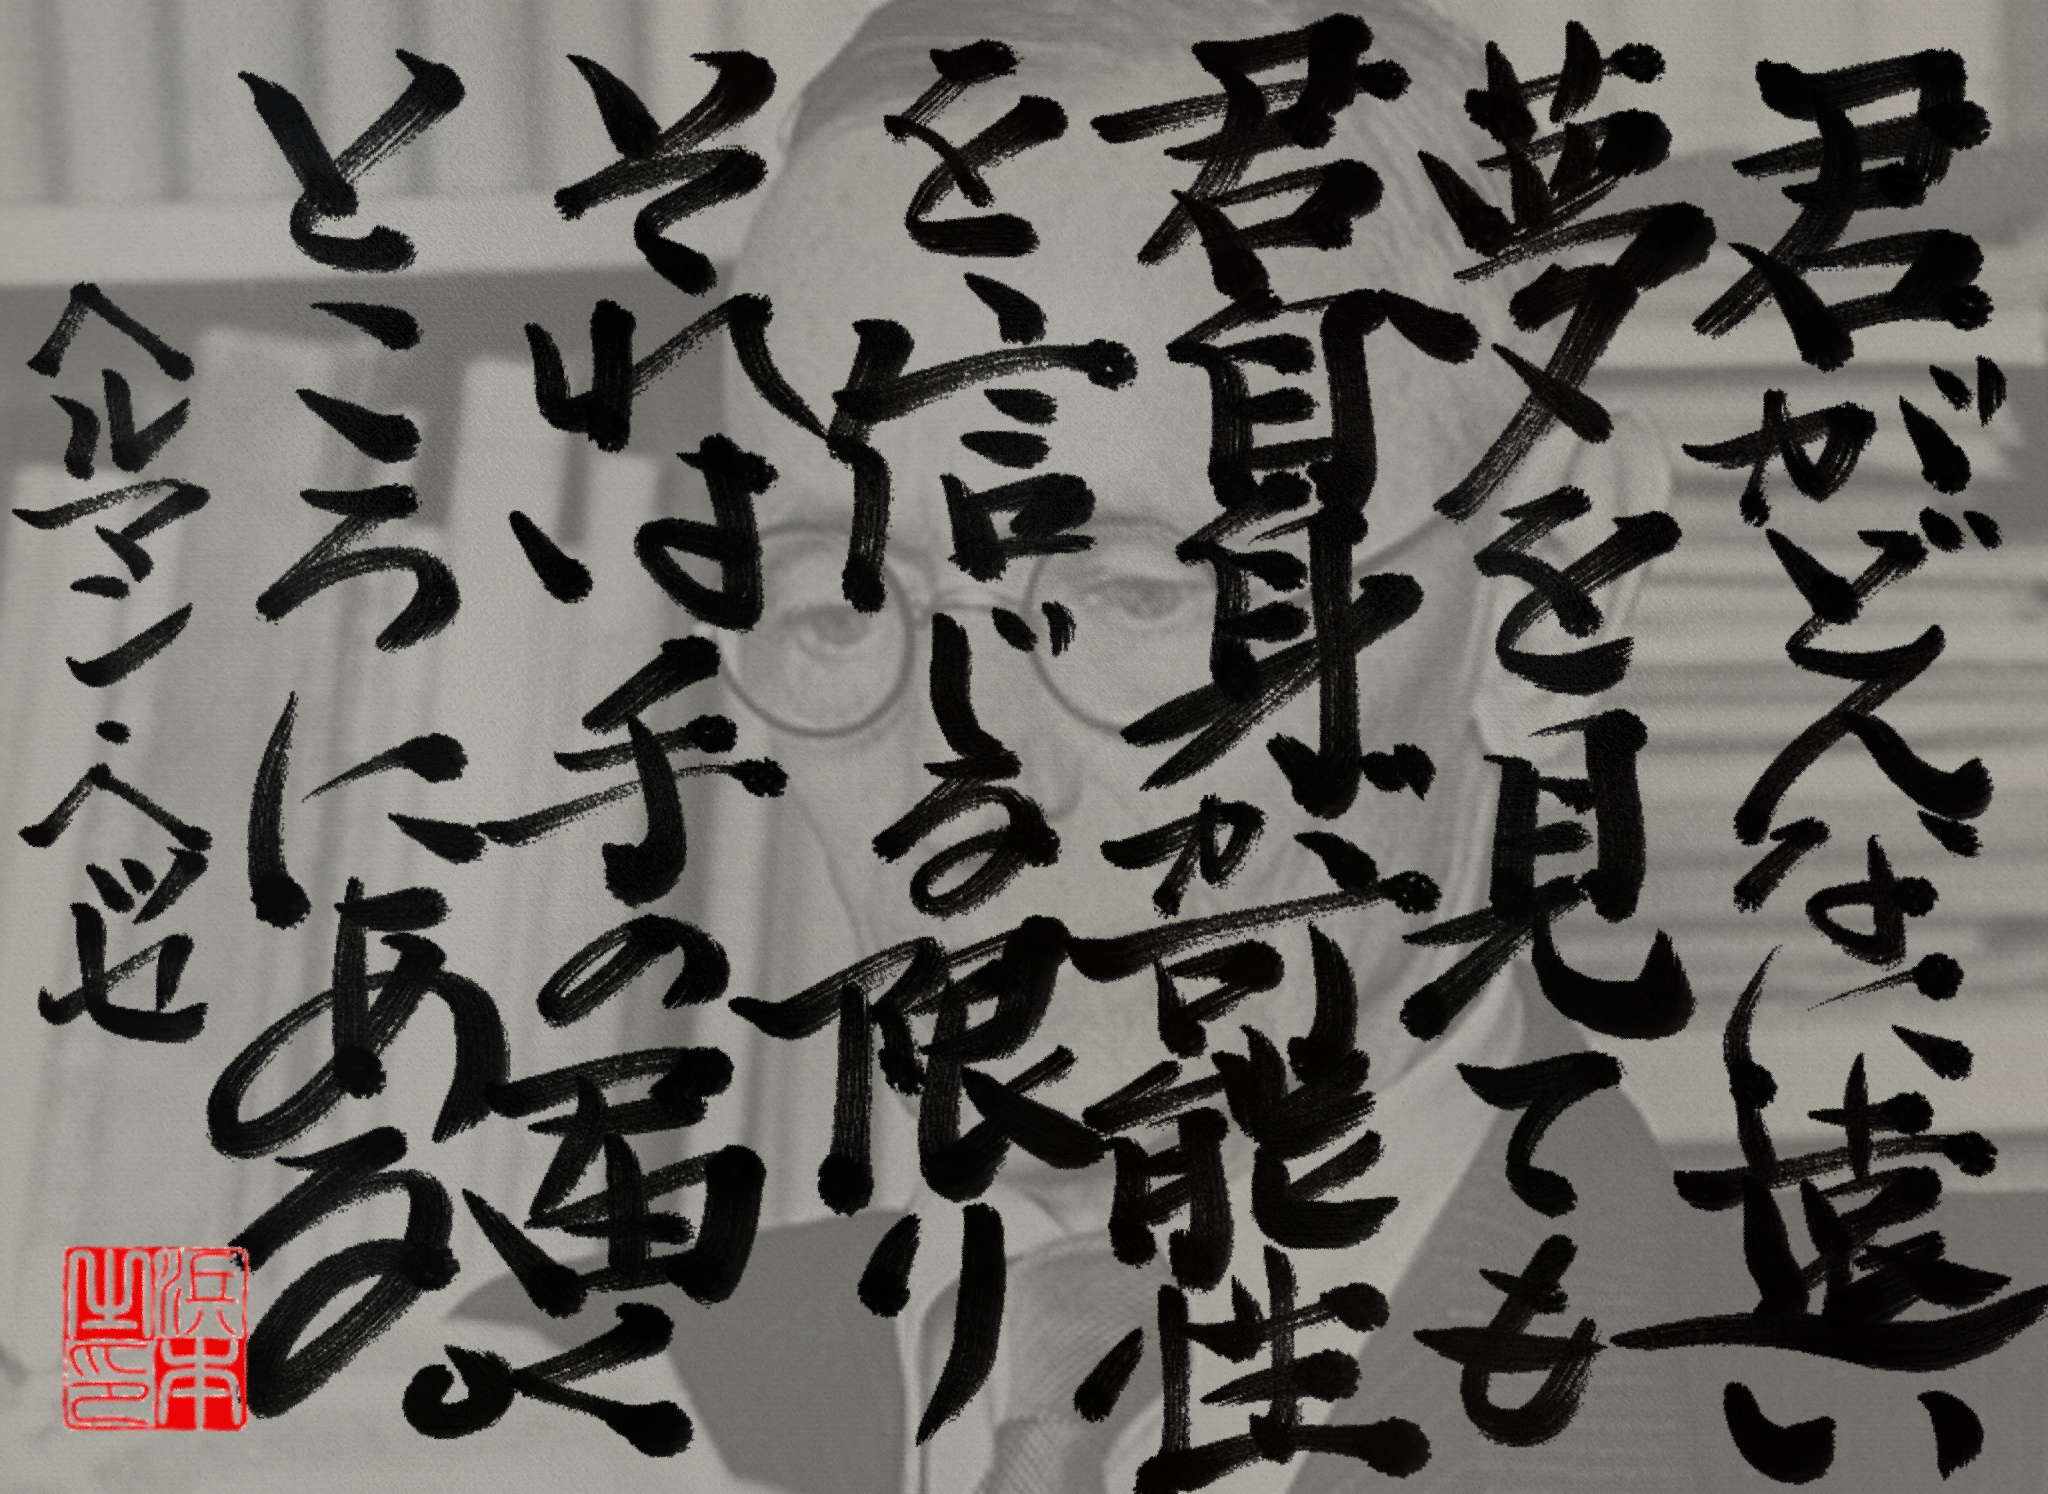 君がどんなに遠い
夢を見ても
君自身が可能性
を信じる限り
それは手の届く
ところにある。
ヘルマン・ヘッセ
浜本
之印